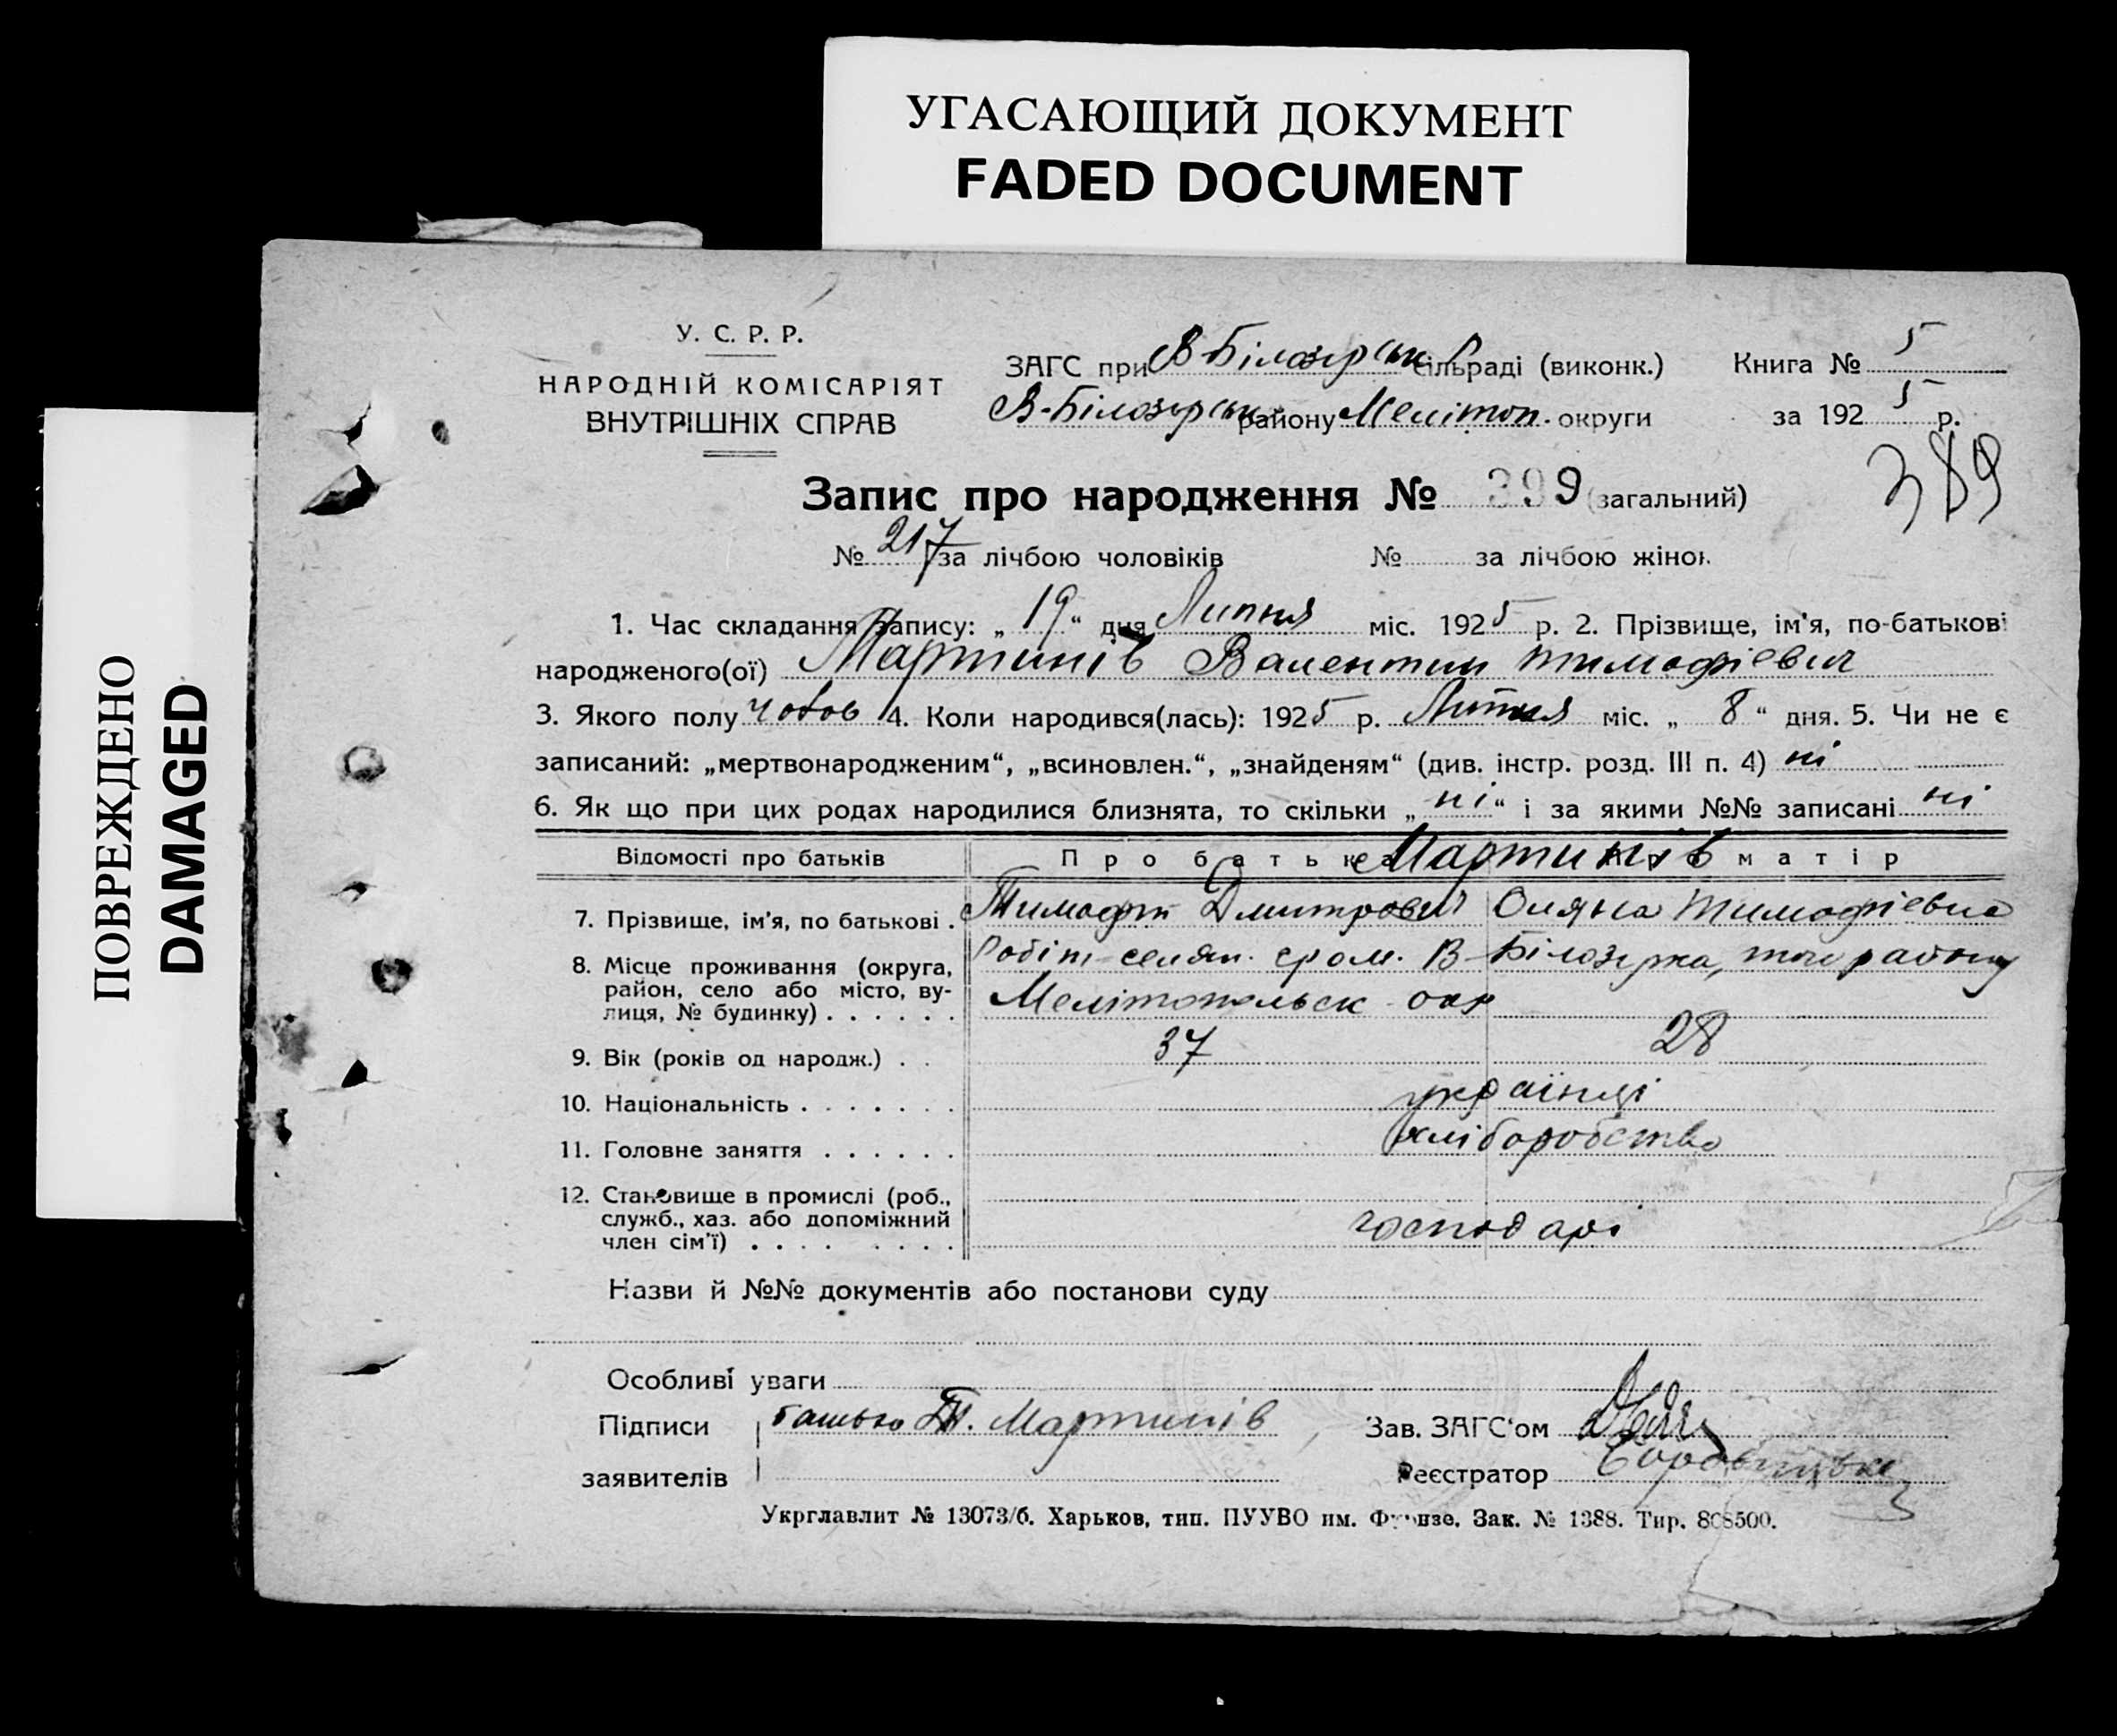 УГАСАЮЩИЙ ДОКУМЕНТ
FADED DOCUMENT
ПОВРЕЖДЕНО
DAMAGED
У. С. Р. Р.
НАРОДНІЙ КОМІСАРІЯТ
ВНУТРІШНІХ СПРАВ
ЗАГС при В-Білозерськ сільраді (виконк.)
В-Білозерськ району Мелітоп. округи
Книга № 5
за 1925 р.
389
Запис про народження № 399 (загальний)
№ 217 за лічбою чоловіків № за лічбою жінок
1. Час складання запису: „19“ дня Липня міс. 1925 р. 2. Прізвище, ім'я, по-батькові
народженого(ої) Мартинів Валентин Тимофієвич
3. Якого полу чолов 4. Коли народився(лась): 1925 р. Липня міс. „8“ дня. 5. Чи не є
записаний: „мертвонародженим“, „всиновлен.“, „знайденям“ (див. інстр. розд. III п. 4) ні
6. Як що при цих родах народилися близнята, то скільки „ні“ і за якими №№ записані ні
Відомості про батьків Про батька Мартинів матір
7. Прізвище, ім'я, по батькові . Тимофій Дмитрович Оляна Тимофієвна
8. Місце проживання (округа, Робіт-селян. гром. В-Білозерка, того району
район, село або місто, ву-
лиця, № будинку) . . . . . . Мелітопольськ окр
9. Вік (років од народж.) . . 37 28
10. Національність . . . . . . . українці
11. Головне заняття . . . . . . хліборобство
12. Становище в промислі (роб.,
служб., хаз. або допоміжний
член сім'ї) . . . . . . . . господарі
Назви й №№ документів або постанови суду
Особливі уваги
Підписи батько Т. Мартинів Зав. ЗАГС'ом
заявителів Реєстратор
Укрглавлит № 13073/б. Харьков, тип. ПУУВО им. Фрунзе. Зак. № 1388. Тир. 808500.